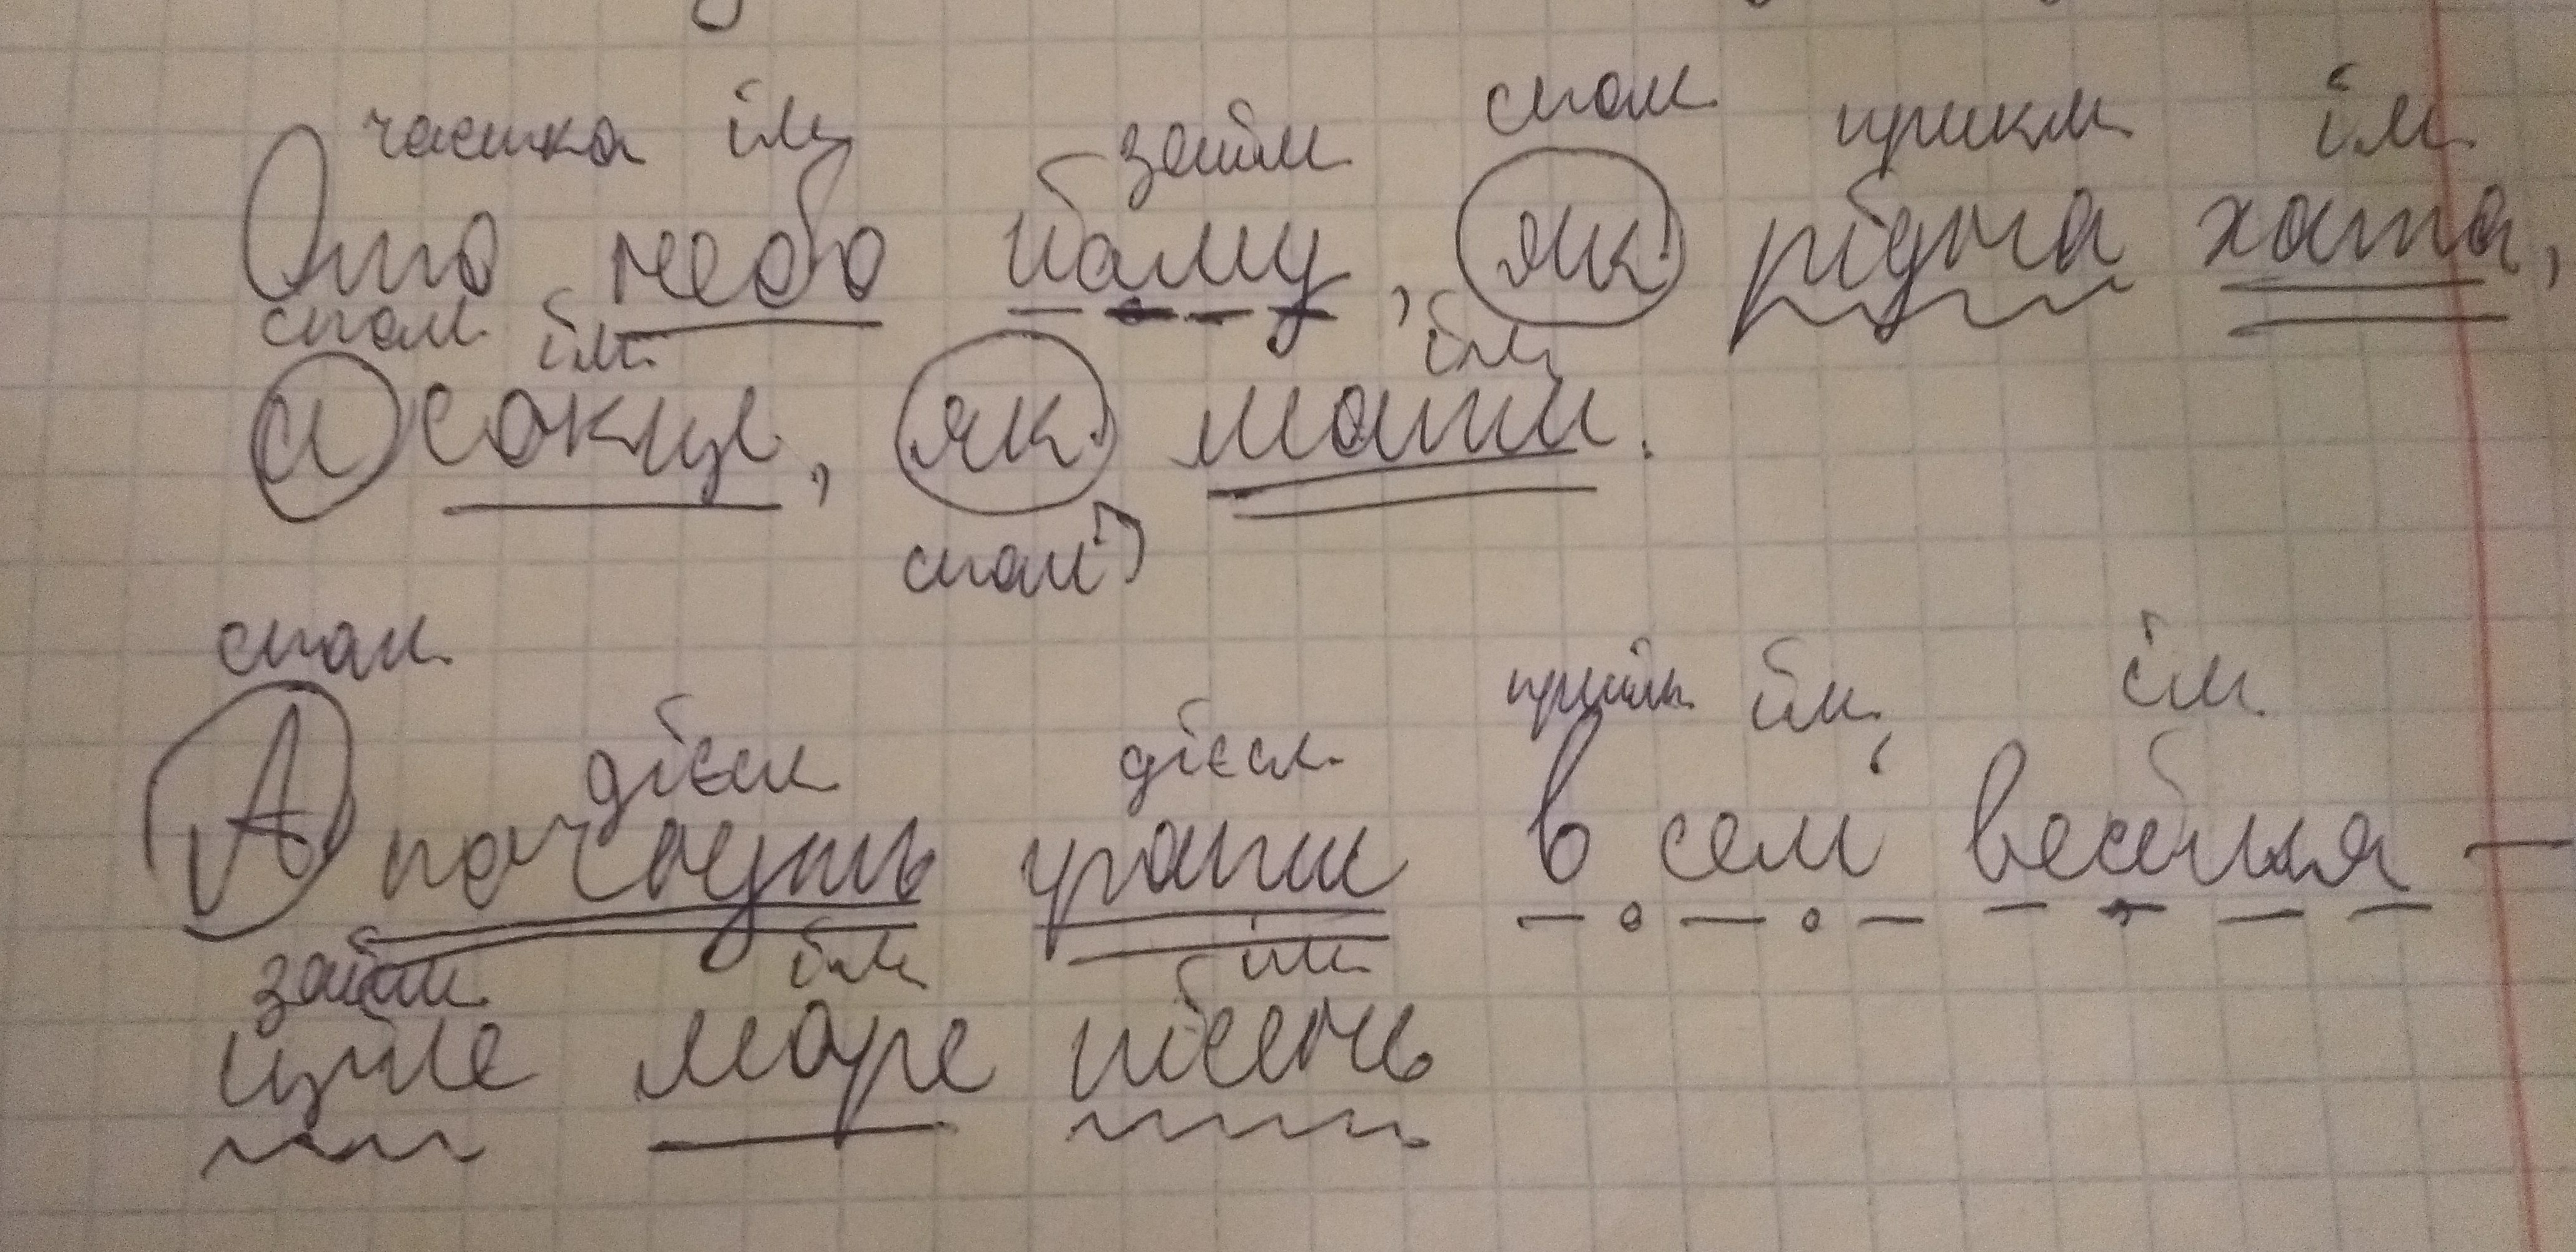 частка ім займ спол прикм ім
Ото небо йому, як рідна хата,
спол ім ім
а сонце, як мати.
спол
спол дієсл дієсл. прийм ім ім
А почнуть грати в селі весілля —
займ ім ім
ціле море пісень